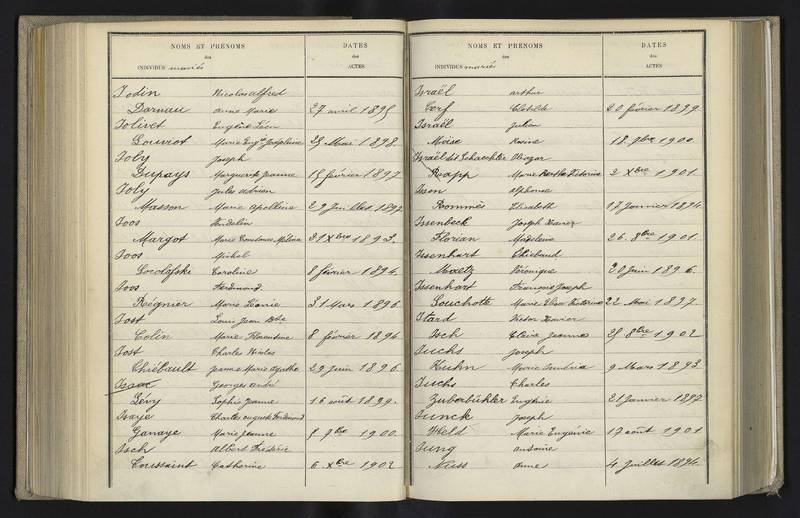 NOMS ET PRÉNOMS DATES
des des
INDIVIDUS mariés ACTES
Jodin Nicolas alfred
Darnau anne Marie 27 avril 1895
Jolivet Eugène Léon
Gouvrot Marie Eugnie Joséphine 25 Mai 1898.
Joly Joseph
Dupays Marguerite Jeanne 15 février 1897
Joly Jules adrien
Masson Marie Apolline 29 Juillet 1892
Joos Fridolin
Margot Marie Constance Mélina 31 Xbre 1893.
Joos Michel
Socolofske Caroline 8 février 1894.
Joos Ferdinand.
Régnier Marie Léonie 31 Mars 1896.
Jost Louis Jean Bte
Colin Marie Florentine 8 février 1894
Jost Charles Nicolas
Thiébault Jeanne Marie Agathe 29 Juin 1896.
Isaac Georges andré
Lévy Sophie Jeanne 16 août 1899.
Isaye Charles auguste Ferdinand
Ganaye Marie Jeanne 5 7bre 1900.
Isch Albert Frédéric
Toussaint Catherine 6 Xbre 1902
NOMS ET PRÉNOMS DATES
des des
INDIVIDUS mariés ACTES
Israël arthur
Cerf Clotilde 20 février 1899.
Israël Julien
Moïse Rosine 18. 9bre 1900.
Israël dit Schaechter Eléazar
Rapp Marie Berthe Victorine 2 Xbre 1901.
Issen alphonse
Rommès Elisabeth 17 Janvier 1894
Issenbeck Joseph Xavier
Florian Madeleine 26. 8bre 1901.
Issenhart Thiébaud
Maetz Véronique 20 Juin 1896.
Issenhart François Joseph
Souchotte Marie Elisa Victorine 22 Mai 1897.
Itard Victor Xavier
Isch Claire Jeanne 25 8bre 1902
Juchs Joseph
Kuhn Marie 9 Mars 1893.
Juchs Charles
Zuberbühler Eugénie 21 Janvier 1897
Junck Joseph
Held Marie Eugénie 17 août 1901
Jung antoine
Nuss anne 4 Juillet 1894.